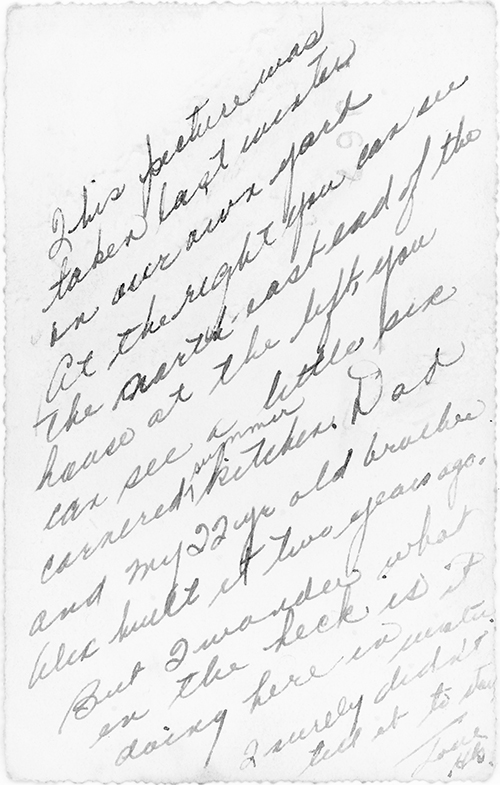 This picture was
taken last winter
in our own yard
At the right you can see
the north east end of the
house at the left, you
can see a little six
cornered summer kitchen. Dad
and my 22 yr old brother
Alex built it two years ago.
But I wonder what
in the heck is it
doing here in winter.
I surely didn't
tell it to stay
Love